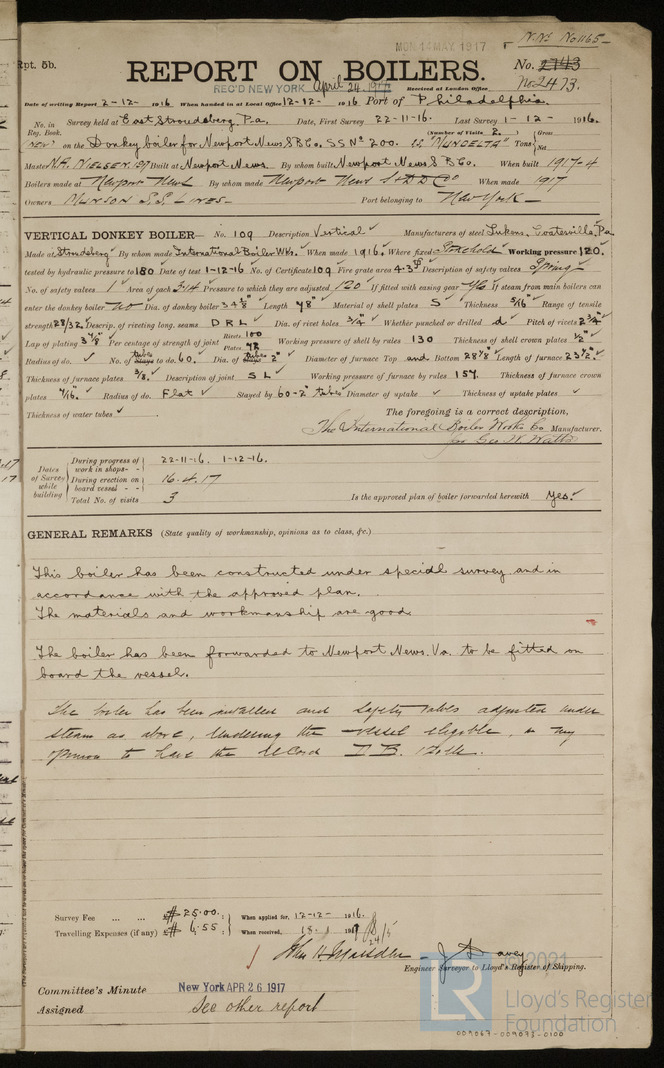 N.N. No 1165-
MON 14 MAY 1917
Rpt. 5b.
REPORT ON BOILERS.
No. 2743
No. 2473.
REC'D NEW YORK April 24. 1917 Received at London Office
Date of writing Report 2-12- 1916 When handed in at Local Office 12-12- 1916 Port of Philadelphia.
No. in Reg. Book. Survey held at East Stroudsberg, Pa. Date, First Survey 22-11-16. Last Survey 1-12- 1916.
(Number of Visits 2.)
(NEW) on the Donkey boiler for Newport News S B Co. SS No 200. "MUNDELTA" Tons Gross Net
Master N.A. NIELSEN Built at Newport News By whom built Newport News S B Co. When built 1917-4
Boilers made at Newport News By whom made Newport News S & D D Co When made 1917
Owners MUNSON S.S. LINES- Port belonging to New York-
VERTICAL DONKEY BOILER- No. 109 Description Vertical Manufacturers of steel Lukens, Coatesville, Pa
Made at Stroudsberg By whom made International Boiler Wks. When made 1916. Where fixed Stokehold Working pressure 120.
tested by hydraulic pressure to 180 Date of test 1-12-16 No. of Certificate 109 Fire grate area 4.3 Description of safety valves Spring
No. of safety valves 1 Area of each 3.14 Pressure to which they are adjusted 120 If fitted with easing gear Yes If steam from main boilers can
enter the donkey boiler No Dia. of donkey boiler 34 1/8" Length 48" Material of shell plates S Thickness 5/16" Range of tensile
strength 28/32 Descrip. of riveting long. seams D R L Dia. of rivet holes 3/4" Whether punched or drilled d Pitch of rivets 2 3/4"
Lap of plating 3 7/8" Per centage of strength of joint Rivets 100 Plates 72 Working pressure of shell by rules 130 Thickness of shell crown plates 1/2"
Radius of do. No. of tubes to do. 60. Dia. of tubes 2" Diameter of furnace Top and Bottom 28 7/8" Length of furnace 23 1/2"
Thickness of furnace plates 3/8. Description of joint S L Working pressure of furnace by rules 154 Thickness of furnace crown
plates 7/16" Radius of do. Flat Stayed by 60-2" tubes Diameter of uptake Thickness of uptake plates
Thickness of water tubes The foregoing is a correct description,
The International Boiler Works Co Manufacturer.
Geo. W. Watts
Dates of Survey while building
During progress of work in shops - - 22-11-16. 1-12-16.
During erection on board vessel - - - 16.4.17
Total No. of visits 3 Is the approved plan of boiler forwarded herewith Yes.
GENERAL REMARKS (State quality of workmanship, opinions as to class, &c.)
This boiler has been constructed under special survey and in
accordance with the approved plan.
The materials and workmanship are good.
The boiler has been forwarded to Newport News. Va. to be fitted on
board the vessel.
The boiler has been installed and Safety Valves adjusted under
steam as above, rendering the vessel eligible, in my
opinion to have the record D.B. 120 lbs.
Survey Fee ... ... $ 25.00. When applied for, 12-12- 1916.
Travelling Expenses (if any) $ 6.55 When received, 18. 1917
John H. Maisden
J Davey
Engineer Surveyor to Lloyd's Register of Shipping.
Committee's Minute New York APR 26 1917
Assigned See other report
© 2021
LR
Lloyd's Register
Foundation
009067-009073-0100